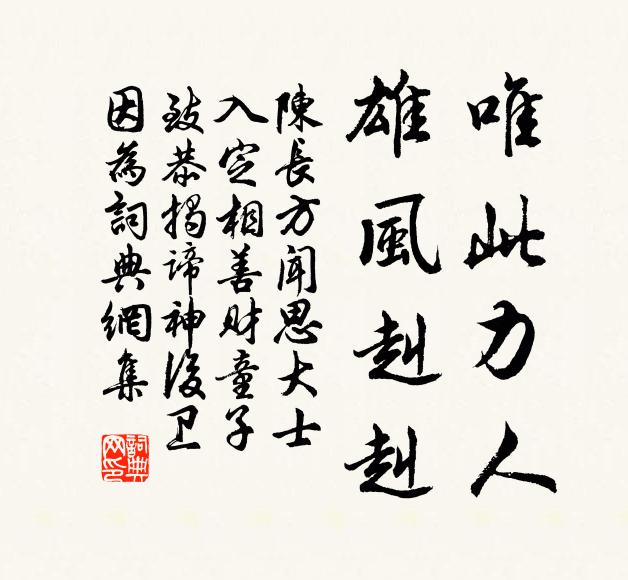 唯此力人
雄風赳赳
陳長方聞思大士
入定相善財童子
致恭揭諦神後卫
因為詞典網集
詞典网印